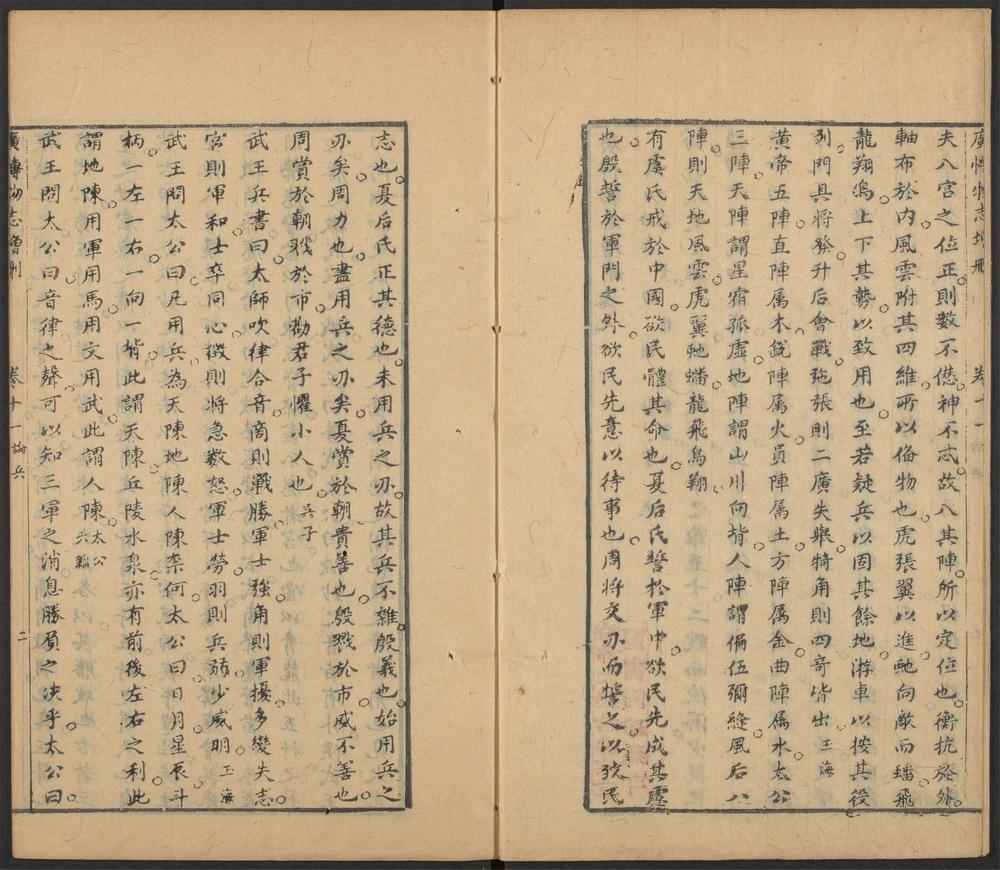 廣博物志增刪 卷十一
夫八宮之位正則数不愆神不忒故八其陣所以定位也衡抗於外
軸布於内風雲附其四維所以俻物也虎張翼以進虵向敵而蟠飛
龍翔鳥上下其勢以致用也至若疑兵以固其餘地游車以按其後
列門具將發升后會戰弛張則二廣失舉犄角則四奇皆出 玉海
黄帝五陣直陣属木銳陣属火員陣属土方陣属金曲陣属水 太公
三陣天陣謂星宿孤虛地陣謂山川向背人陣謂偏伍彌縫風后八
陣則天地風雲虎翼虵蟠龍飛鳥翔
有虞氏戒於中國欲民體其命也夏后氏誓於軍中欲民先成其慮
也殷誓於軍門之外欲民先意以待事也周將交刃而誓之以致民
志也夏后氏正其德也未用兵之刃故其兵不雜殷義也始用兵之
刃矣周力也盡用兵之刃矣夏賞於朝貴善也殷戮於市威不善也
周賞於朝戮於市勸君子懼小人也 吳子
武王兵書曰太師吹律合音商則戰勝軍士強角則軍擾多變失志
宮則軍和士卒同心徵則将急数怒軍士勞羽則兵弱少威明 玉海
武王問太公曰凡用兵為天陳地陳人陳柰何太公曰日月星辰斗
柄一左一右一向一背此謂天陳丘陵水泉亦有前後左右之利此
謂地陳用車用馬用文用武此謂人陳 太公六韜
武王問太公曰音律之聲可以知三軍之消息勝負之决乎太公曰
廣博物志增刪 卷十一 論兵 二